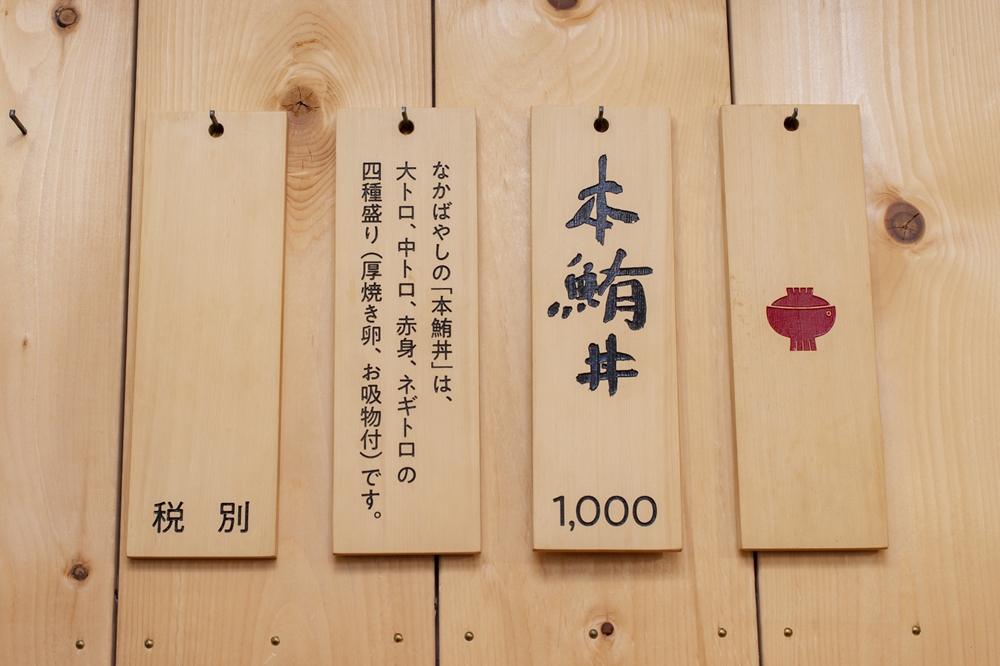 本鮪丼
1,000
なかばやしの「本鮪丼」は、
大トロ、中トロ、赤身、ネギトロの
四種盛り（厚焼き卵、お吸物付）です。
税別